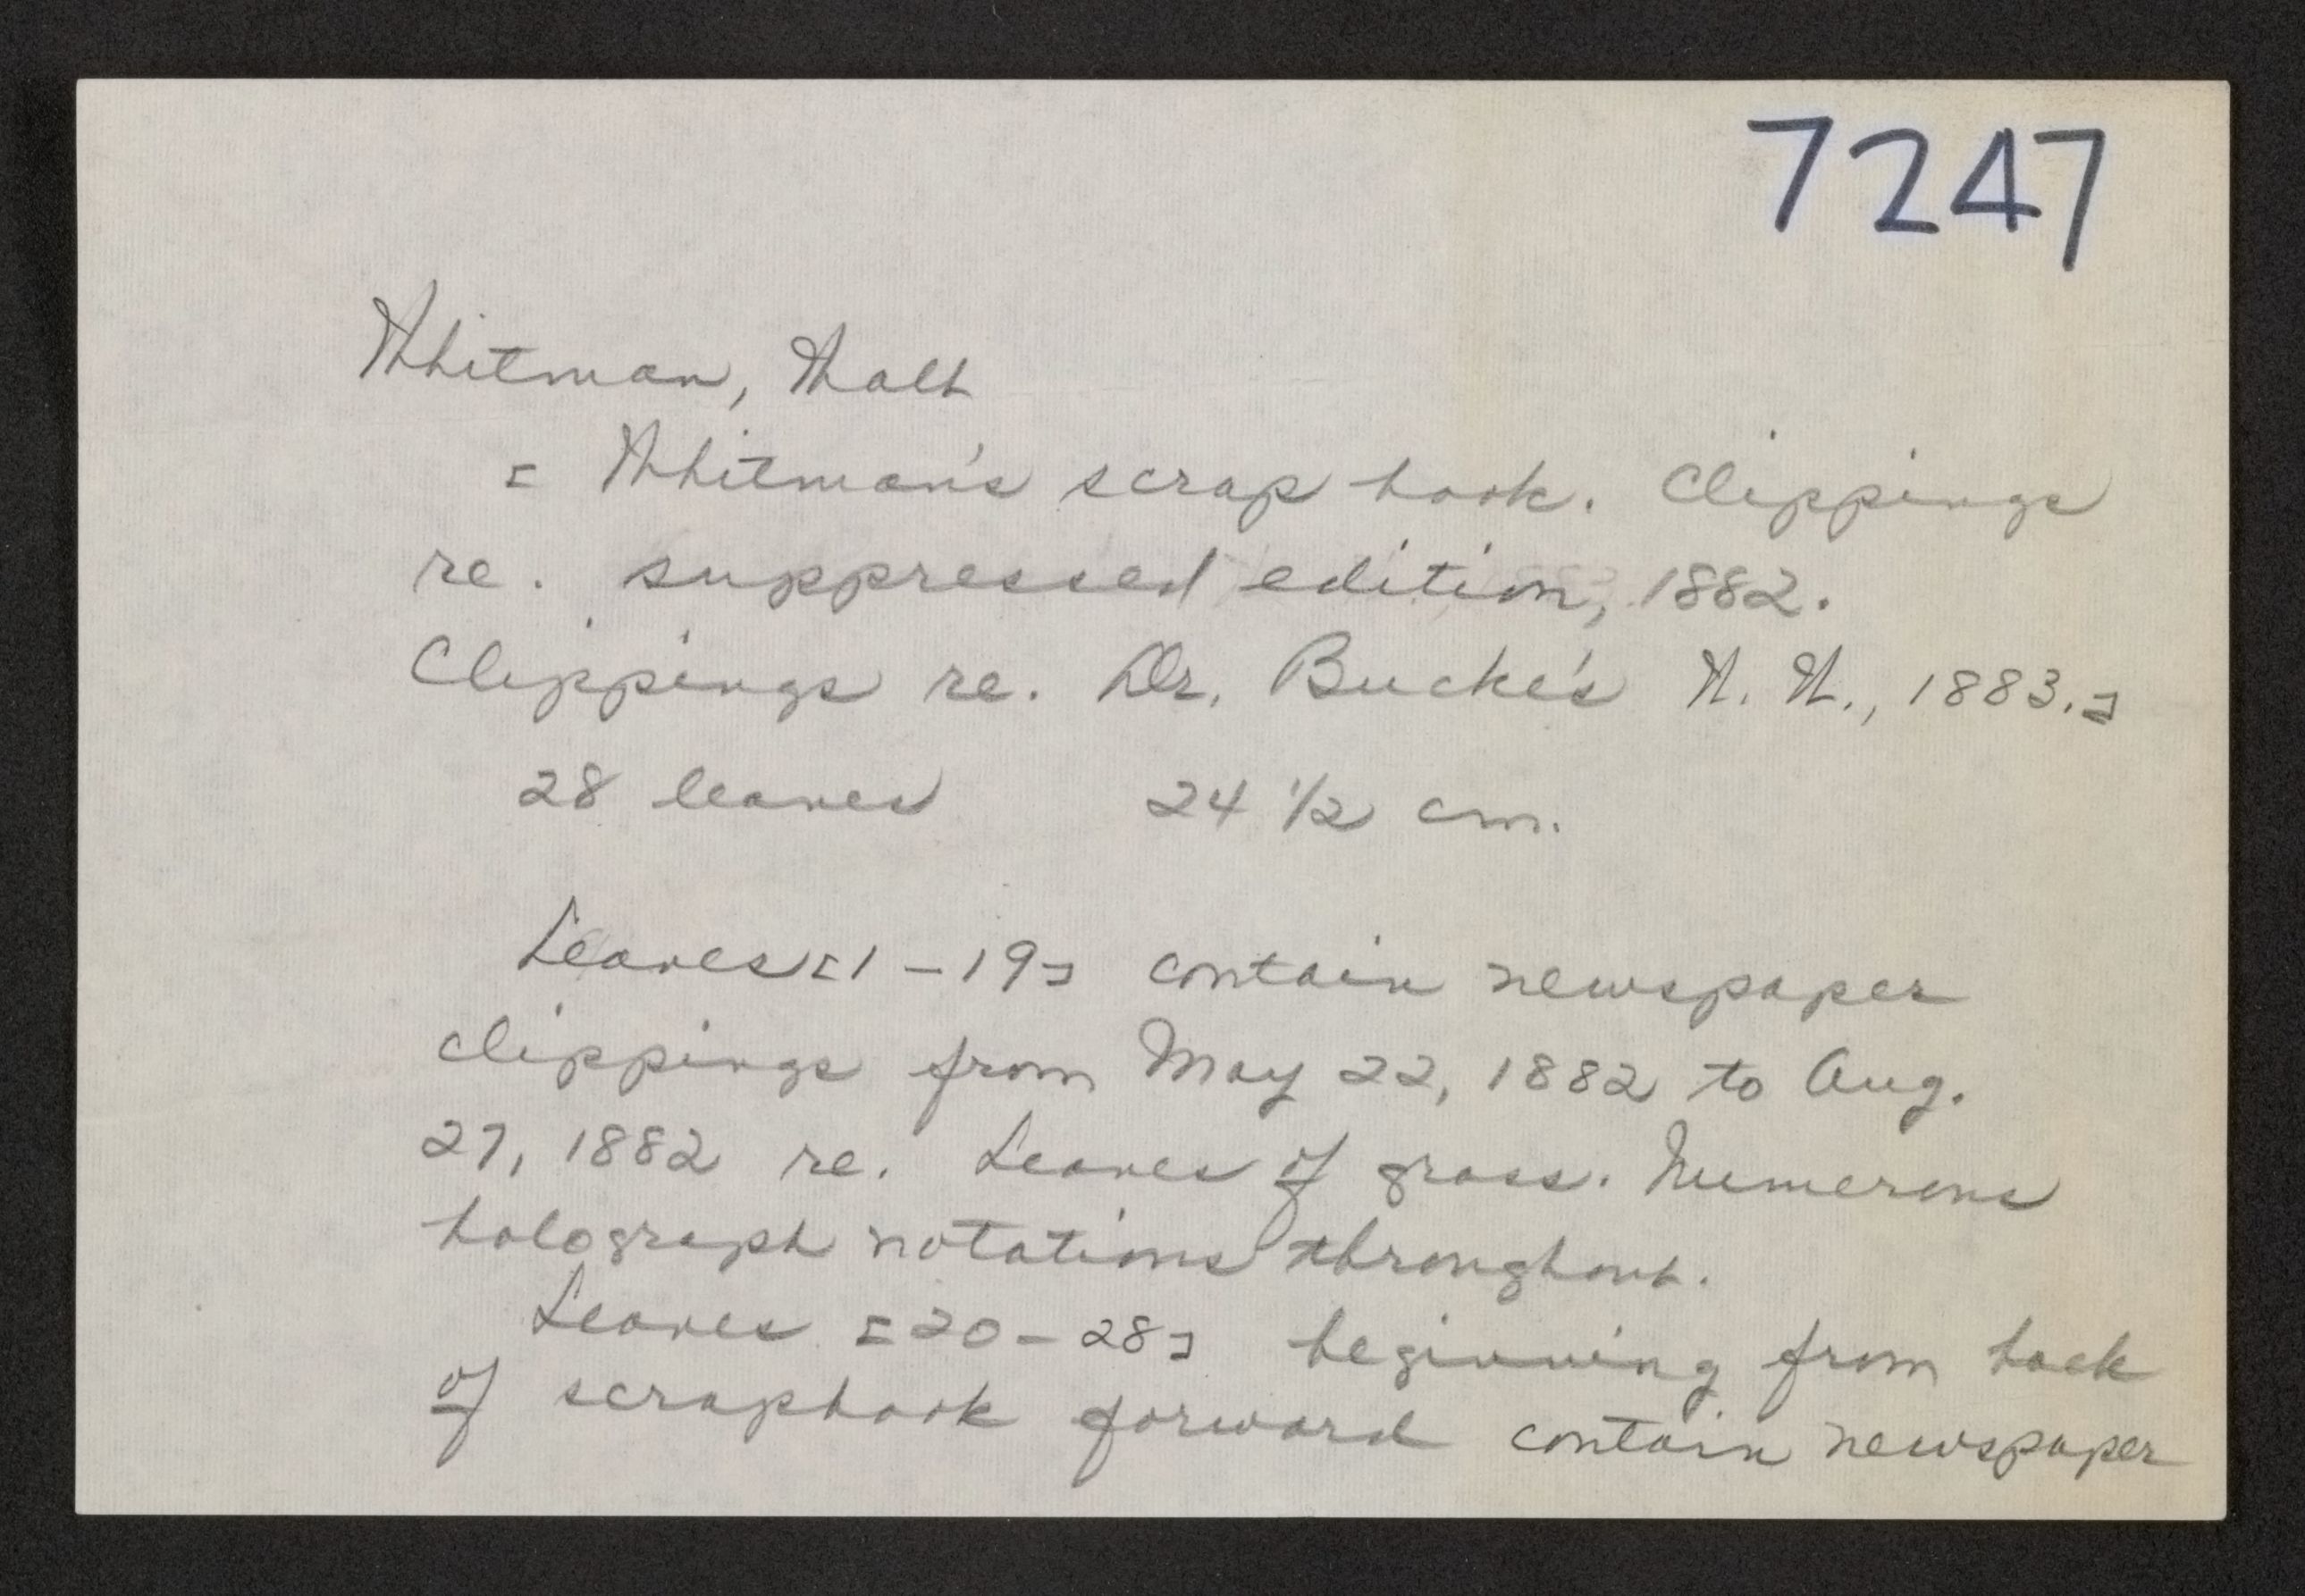 7247
Whitman, Walt
[Whitman's scrap book. Clippings
re. suppressed edition, 1882.
Clippings re. Dr. Bucke's W. W., 1883.]
28 leaves 24 1/2 cm.
Leaves [1-19] contain newspaper
clippings from May 22, 1882 to Aug.
27, 1882 re. Leaves of grass. Numerous
holograph notations throughout.
Leaves [20-28] beginning from back
of scrapbook forward contain newspaper